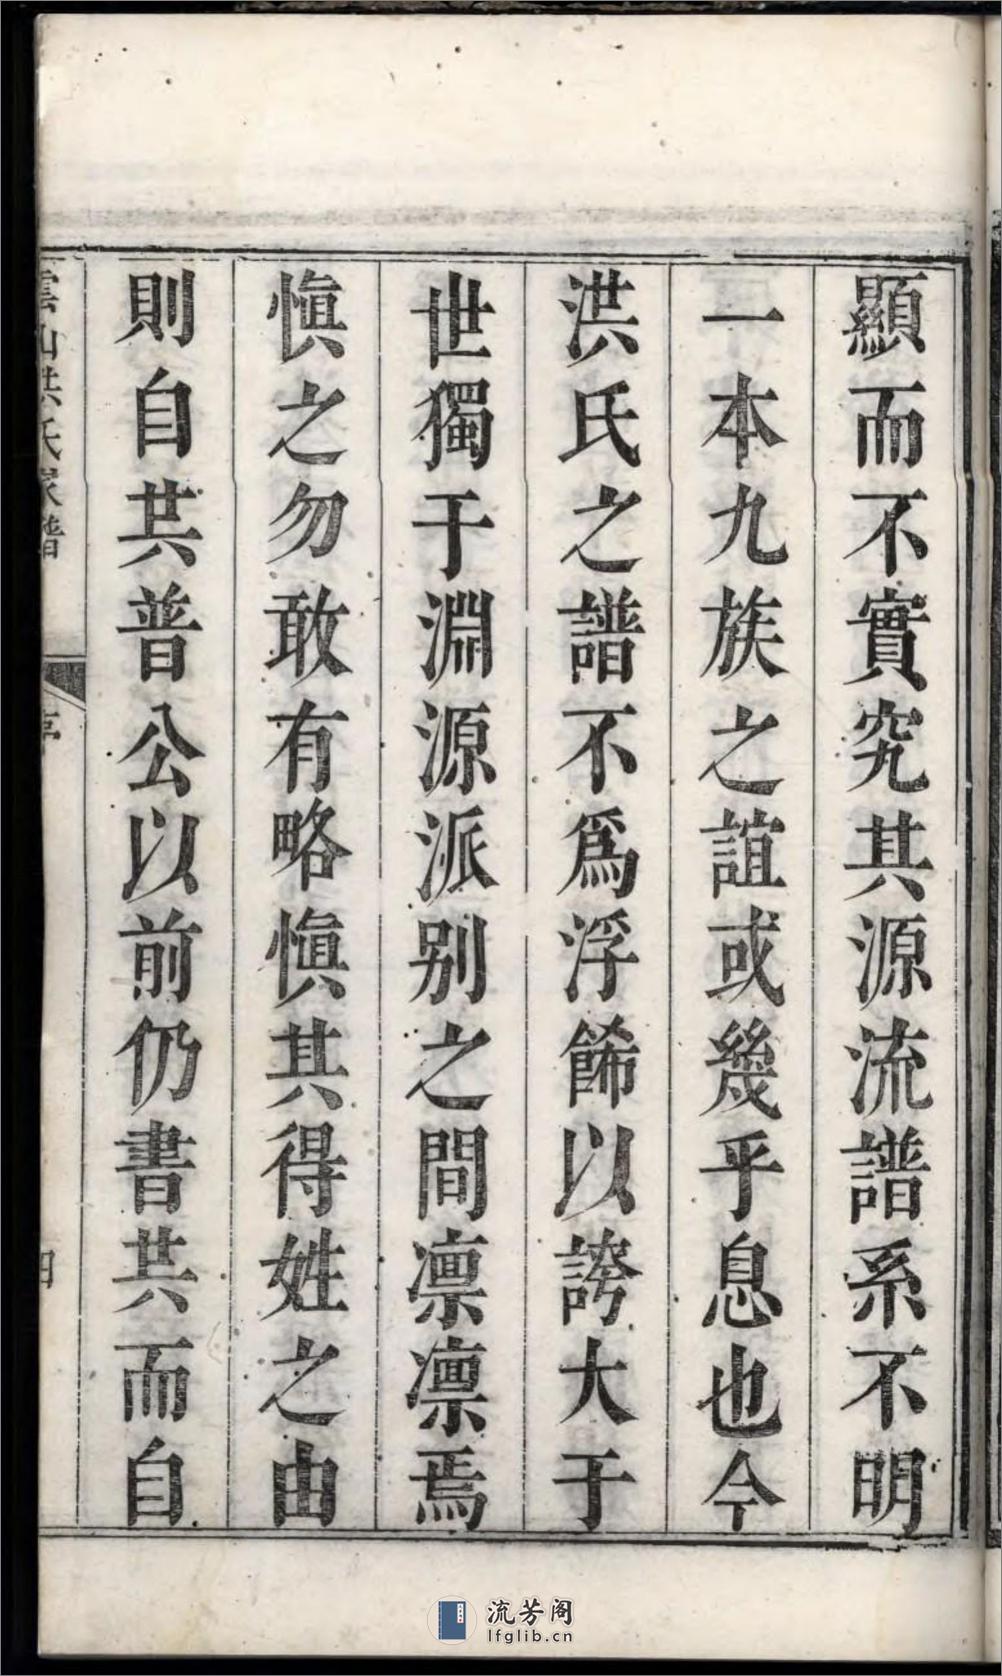 顯而不實究其源流譜系不明
一本九族之誼或幾乎息也今
洪氏之譜不為浮餙以誇大于
世獨于淵源派别之間凛凛焉
慎之勿敢有略慎其得姓之由
則自共普公以前仍書共而自
雲山洪氏家譜
序
四
流芳阁
lfglib.cn